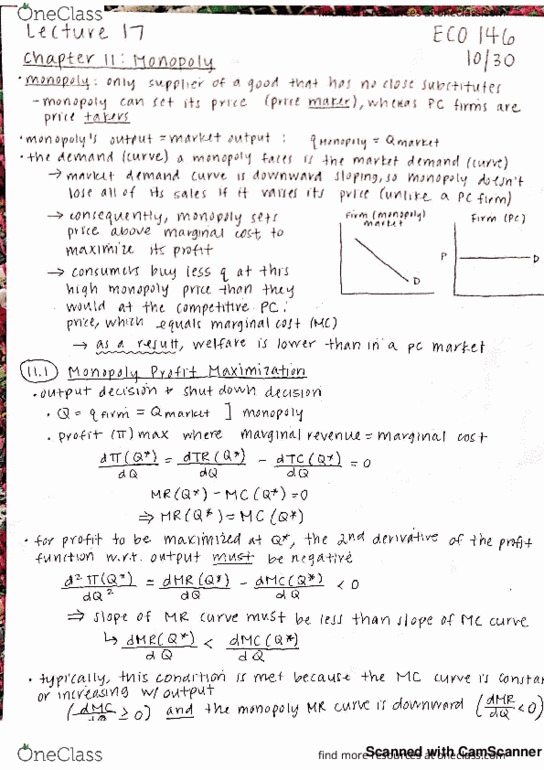 OneClass
find more resources at oneclass.com
Lecture 17
ECO 146
10/30
Chapter 11: Monopoly
• monopoly: only supplier of a good that has no close substitutes
- monopoly can set its price (price maker), whereas PC firms are
price takers
• monopoly's output = market output : q monopoly = Q market
• the demand (curve) a monopoly faces is the market demand (curve)
→ market demand curve is downward sloping, so monopoly doesn't
lose all of its sales if it raises its price (unlike a PC firm)
→ consequently, monopoly sets
price above marginal cost, to
maximize its profit
Firm (monopoly)
market
D
Firm (PC)
P
D
→ consumers buy less q at this
high monopoly price than they
would at the competitive PC:
price, which equals marginal cost (MC)
→ as a result, welfare is lower than in a PC market
11.1 Monopoly Profit Maximization
• output decision + shut down decision
• Q = q firm = Q market ] monopoly
• profit (π) max where marginal revenue = marginal cost
dπ(Q*)/dQ = dTR(Q*)/dQ - dTC(Q*)/dQ = 0
MR(Q*) - MC(Q*) = 0
⇒ MR(Q*) = MC(Q*)
• for profit to be maximized at Q*, the 2nd derivative of the profit
function w.r.t. output must be negative
d²π(Q*)/dQ² = dMR(Q*)/dQ - dMC(Q*)/dQ < 0
⇒ slope of MR curve must be less than slope of MC curve
↳ dMR(Q*)/dQ < dMC(Q*)/dQ
• typically, this condition is met because the MC curve is constan
or increasing w/ output
(dMC/dQ ≥ 0) and the monopoly MR curve is downward (dMR/dQ < 0)
OneClass
find more resources at oneclass.com
Scanned with CamScanner